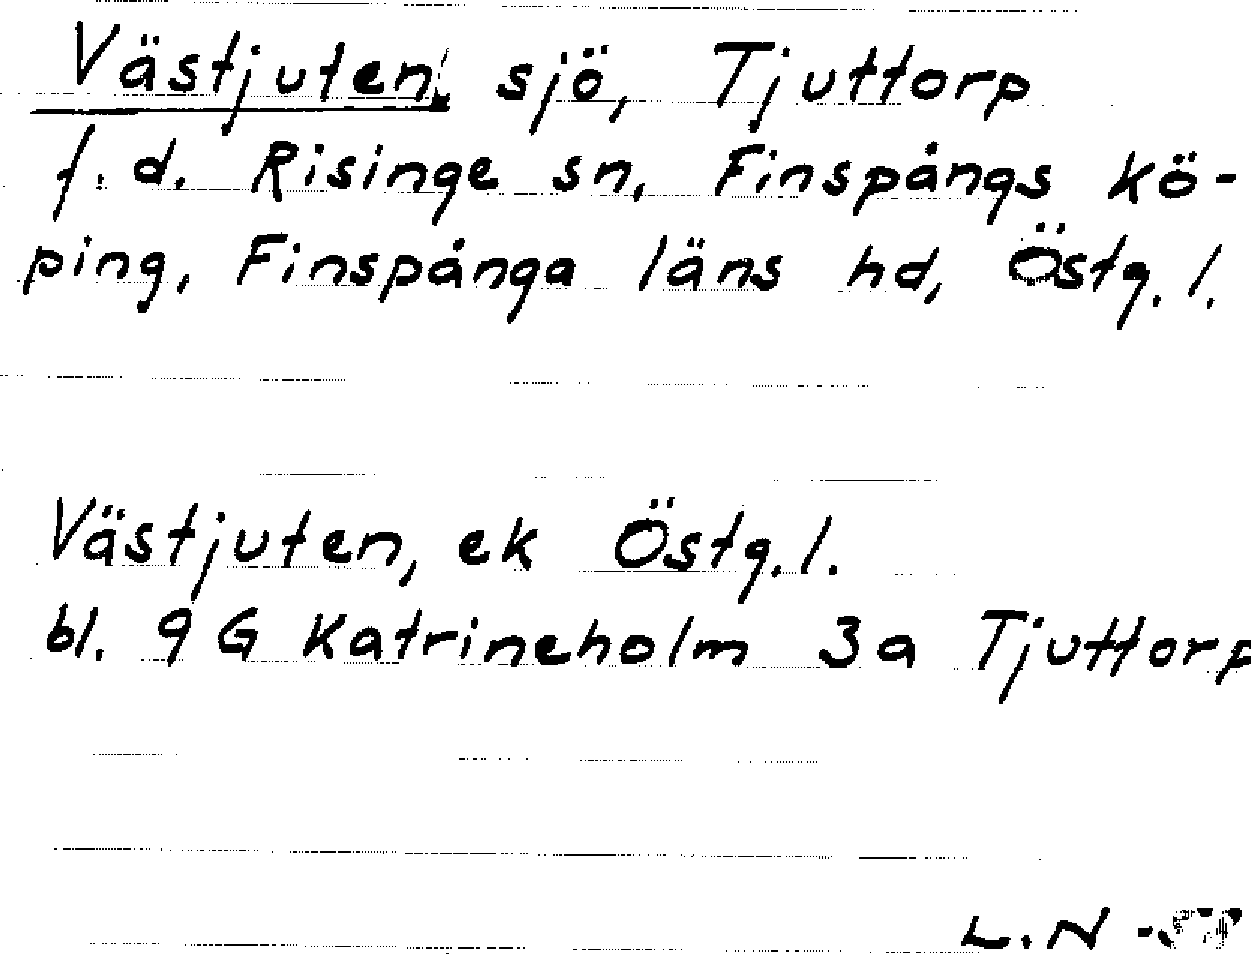 Västjuten, sjö, Tjuttorp
f.d. Risinge sn, Finspångs kö-
ping, Finspånga läns hd, Östg. l.
Västjuten, ek Östg. l.
bl. 9 G Katrineholm 3a Tjuttorp
L.N